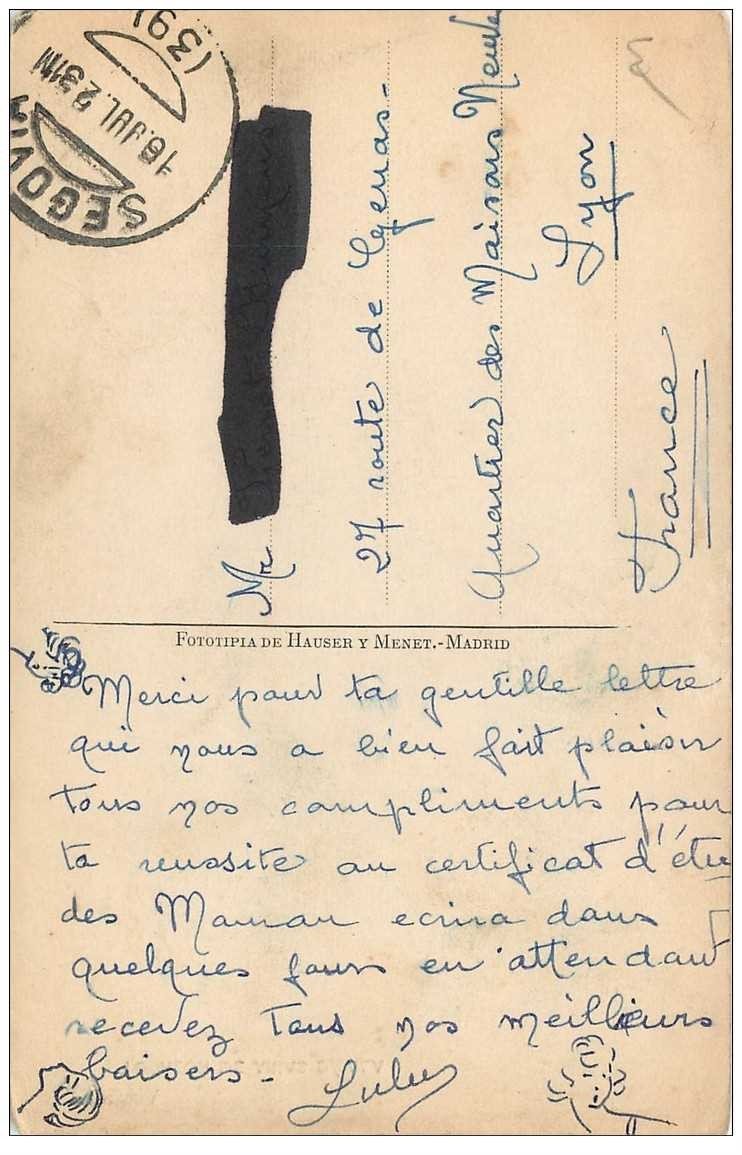 SEGOVIA
16.JUL.23 1M
(39)
Mr
27 route de Genas-
Quartier des Maisons Neuves
Lyon
France
FOTOTIPIA DE HAUSER Y MENET.-MADRID
Merci pour ta gentille lettre
qui nous a bien fait plaisir
Tous nos compliments pour
ta reussite au certificat d'étu
des Maman ecrira dans
quelques jours en attendant
recevez tous nos meilleurs
baisers - Lulu